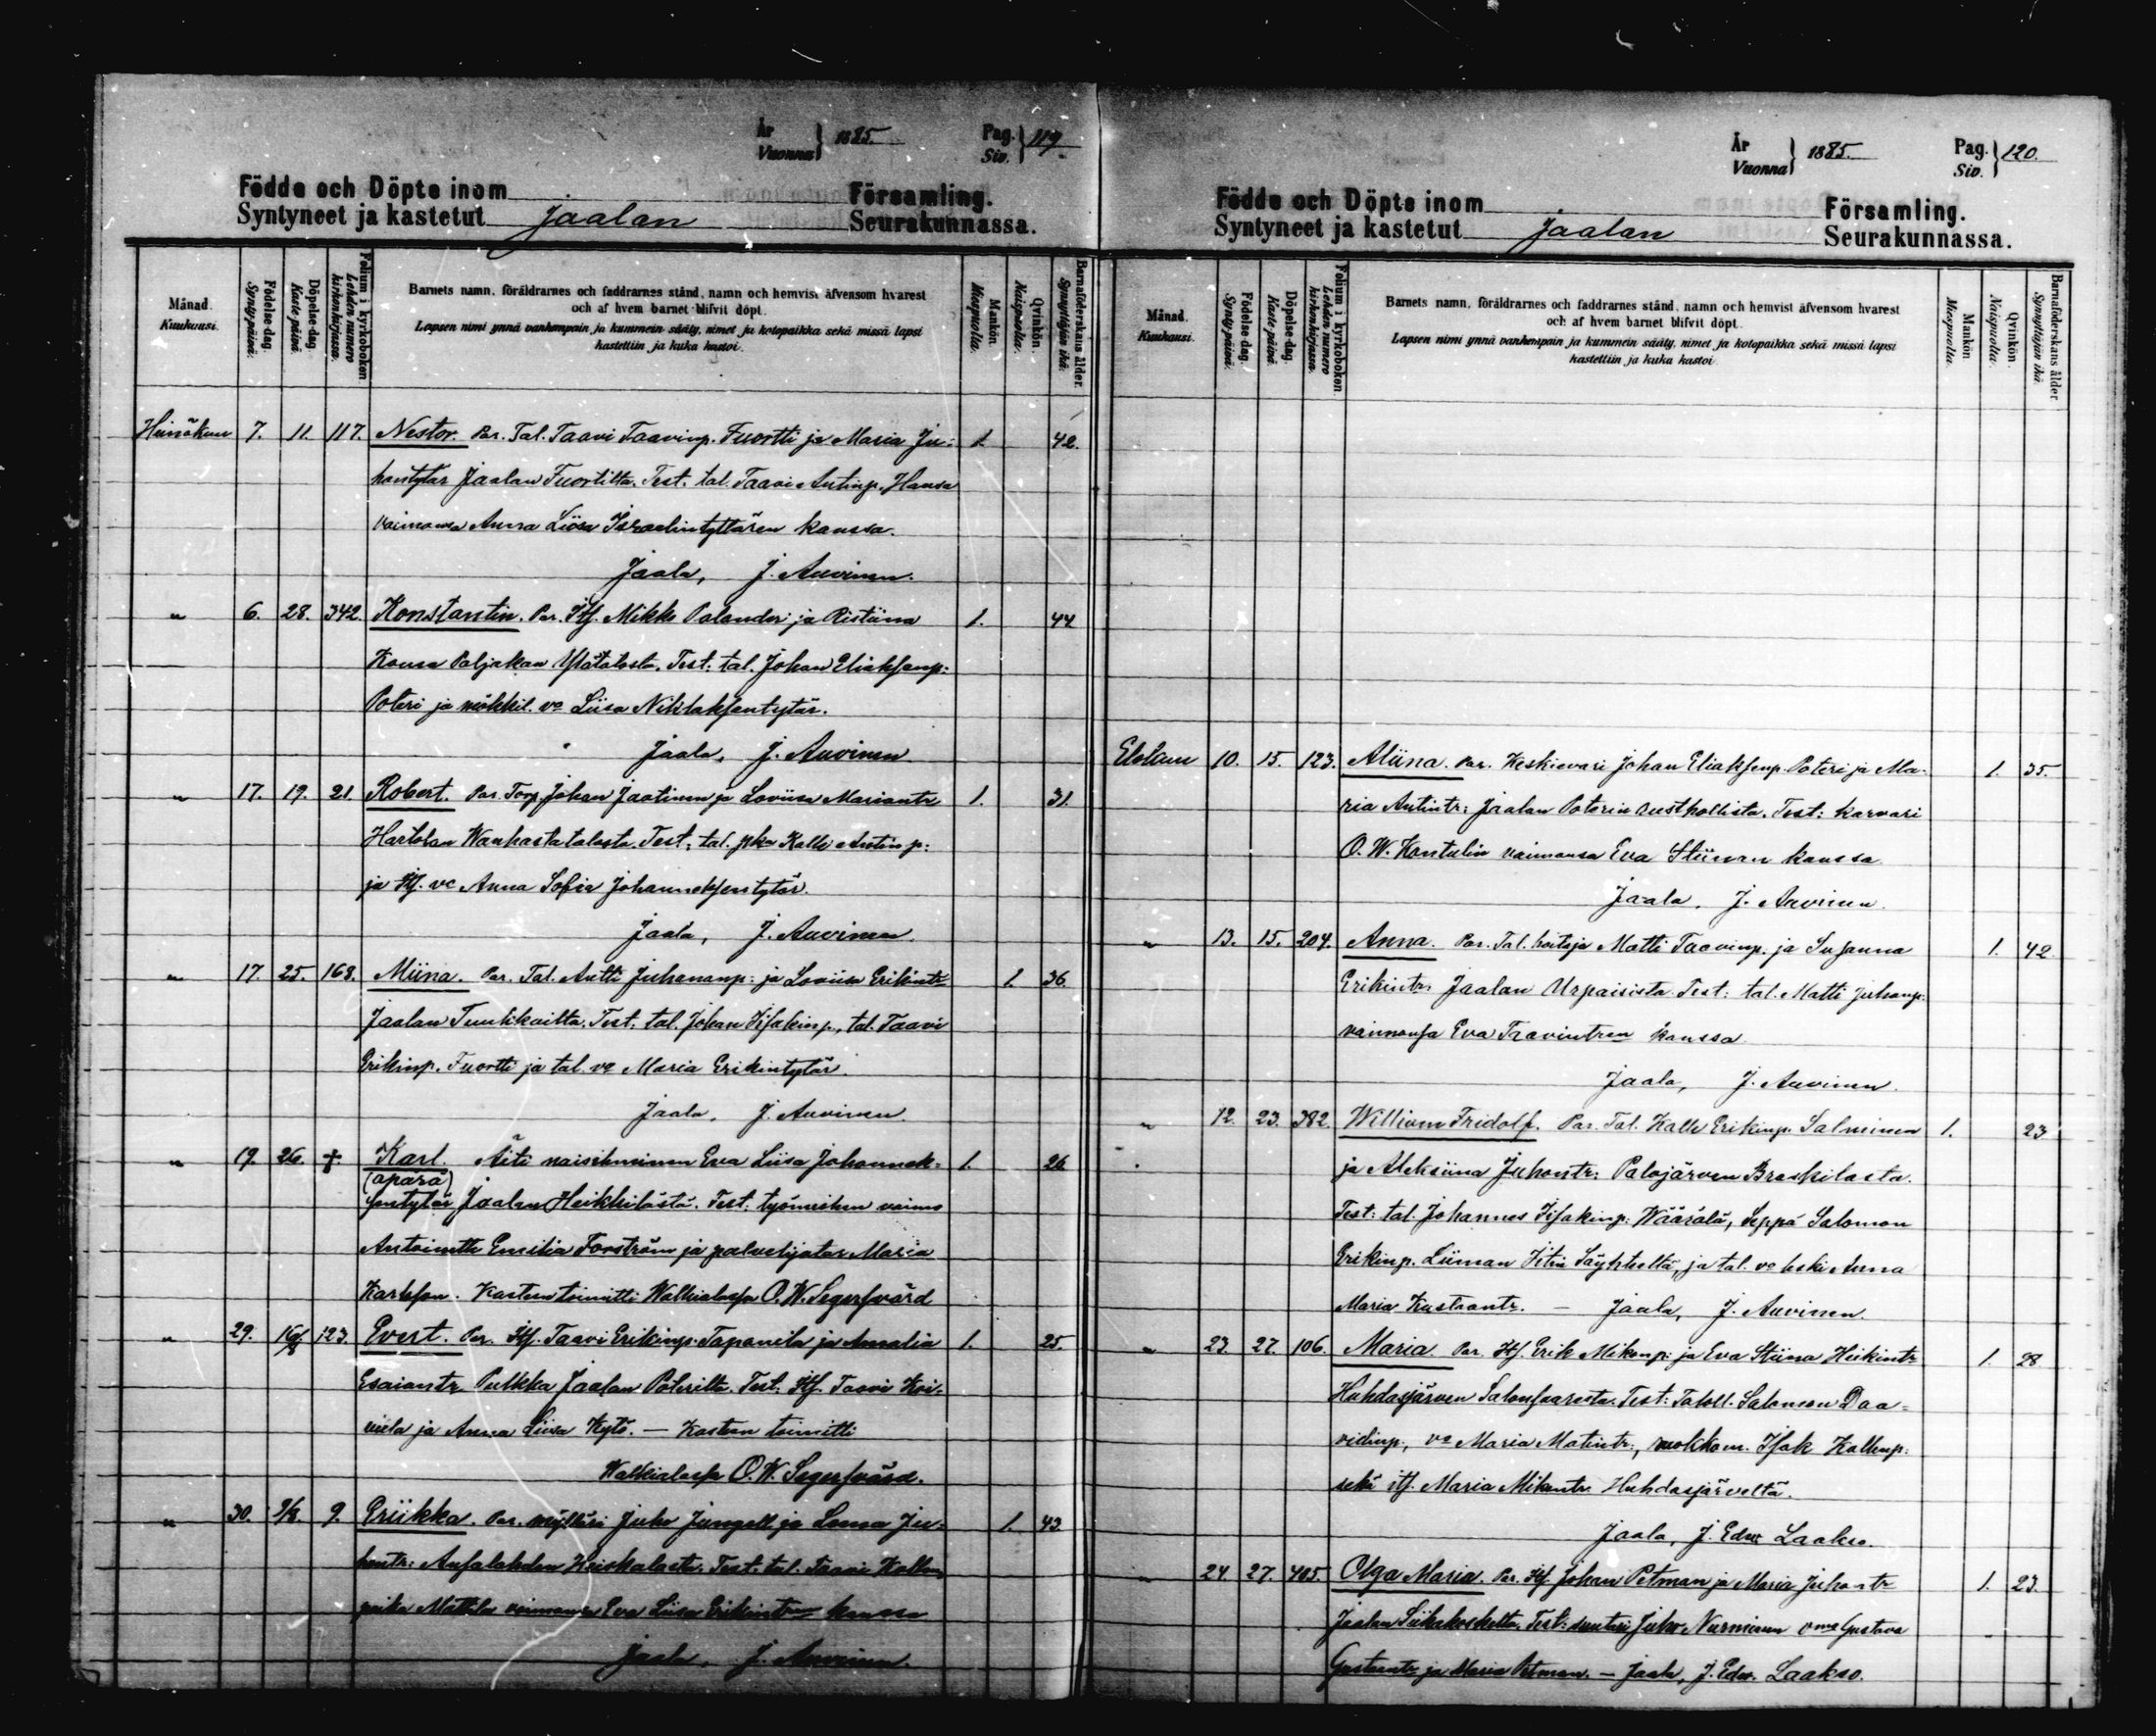 År
Vuonna } 1885. Pag.
Siv. } 119.
Födde och Döpte inom Församling.
Syntyneet ja kastetut Jaalan Seurakunnassa.
Månad.
Kuukausi.
Födelse-dag.
Synty-päivä.
Döpelse-dag.
Kaste-päivä.
Folium i kyrkoboken
Lehden numero
kirkonkirjassa.
Barnets namn, föräldrarnes och faddrarnes stånd, namn och hemvist äfvensom hvarest
och af hvem barnet blifvit döpt.
Lapsen nimi ynnä vanhempain ja kummein sääty, nimet ja kotopaikka sekä missä lapsi
kastettiin ja kuka kastoi.
Mankön.
Miespuolia.
Qvinkön.
Naispuolia.
Barnaföderskans ålder.
Synnyttäjän ikä.
Heinäkuu 7. 11. 117. Nestor. Par. Tal. Taavi Taavinp. Fuortti ja Maria Ju- 1. 42.
hontytär Jaalan Fuortilta. Test. tal. Taavi Antinp. Hansa
vaimonsa Anna Liisa Israelintyttären kanssa.
Jaala, J. Auvinen.
" 6. 28. 342. Konstantin. Par. Itf. Mikko Palander ja Ristiina 1. 44
Kousa Paljakan Ylätalosta. Test: tal. Johan Eliaksenp:
Poteri ja mökkil. vo Liisa Niklaksentytär.
Jaala, J. Auvinen
" 17. 19. 21. Robert. Par. Torp. Johan Jaatinen ja Loviisa Mariantr 1. 31.
Hartolan Wanhastatalosta. Test: tal. pka Kalle Antinp:
ja Itf. vo Anna Sofia Johanneksentytär.
Jaala, J. Auvinen.
" 17. 25. 168. Miina. Par. Tal. Antti Juhananp: ja Loviisa Erikintr 1. 36.
Jaalan Tuulikailta. Test. tal. Johan Isakinp., tal. Taavi
Erikinp. Fuortti ja tal. vo Maria Erikintytär.
Jaala, J. Auvinen.
" 19. 26. † Karl. Äiti naisihminen Eva Liisa Johannek- 1. 26
(äpärä)
sentytär Jaalan Heikkilästä. Test: työmiehen vaimo
Antoinette Emilia Forström ja palvelijatar Maria
Karlsson. Kasteen toimitti Walkialassa O. W. Segersvärd
" 29. 16/8 123. Evert. Par. Itf. Taavi Erikinp. Tapanila ja Amalia 1. 25.
Esaiantr Pulkka Jaalan Poterilta. Test. Itf. Taavi Koi-
viela ja Anna Liisa Kytö. — Kasteen toimitti
Walkialassa O. W. Segersvärd.
" 30. 2/8. 9. Eriikka. Par. mylläri Juho Jungell ja Leena Ju- 1. 43.
hontr: Ansalahden Keiskalasta. Test: tal. Taavi Kallen
poika Mattila vaimonsa Eva Liisa Erikintren kanssa
Jaala, J. Auvinen.
År
Vuonna } 1885. Pag.
Siv. } 120.
Födde och Döpte inom Församling.
Syntyneet ja kastetut Jaalan Seurakunnassa.
Månad.
Kuukausi.
Födelse-dag.
Synty-päivä.
Döpelse-dag.
Kaste-päivä.
Folium i kyrkoboken.
Lehden numero
kirkonkirjassa.
Barnets namn, föräldrarnes och faddrarnes stånd, namn och hemvist äfvensom hvarest
och af hvem barnet blifvit döpt.
Lapsen nimi ynnä vanhempain ja kummein sääty, nimet ja kotopaikka sekä missä lapsi
kastettiin ja kuka kastoi.
Mankön
Miespuolia.
Qvinkön.
Naispuolia.
Barnaföderskans ålder
Synnyttäjän ikä.
Elokuu 10. 15. 123. Aliina. Par. Keskievari Johan Eliaksenp. Poteri ja Ma- 1. 35.
ria Antintr: Jaalan Poterin rusthollista. Test: karvari
O. W. Kontulin vaimonsa Eva Stiinan kanssa.
Jaala, J. Auvinen.
" 13. 15. 204. Anna. Par. Tal. hoitaja Matti Taavinp. ja Susanna 1. 42
Erikintr: Jaalan Urpaisista. Test: tal. Matti Juhanp:
vaimonsa Eva Taavintren kanssa
Jaala, J. Auvinen.
" 12. 23. 382. William Fridolf. Par. Tal. Kalle Erikinp. Salminen 1. 23
ja Aleksiina Juhontr: Palojärven Braskilasta.
Test: tal. Johannes Isakinp: Wäärälä, Seppä Salomon
Erikinp. Liiman Iitin Säyhteeltä, ja tal. vo leski Anna
Maria Kustaantr. — Jaala, J. Auvinen.
" 23. 27. 106. Maria. Par. Itf. Erik Mikonp: ja Eva Stiina Heikintr 1. 28
Huhdasjärven Salonsaaresta. Test: Taloll. Salomon Daa-
vidinp., vo Maria Matintr:, mökkim. Isak Kallenp:
sekä itf. Maria Mikontr. Huhdasjärveltä.
Jaala, J. Edw. Laakso.
" 24. 27. 405. Olga Maria. Par. Itf. Johan Petman ja Maria Juhontr 1. 23.
Jaalan Siikakoskelta. Test: suutari Juho Nurminen vmo Gustava
Gustantr. ja Maria Petman. — Jaala, J. Edw. Laakso.